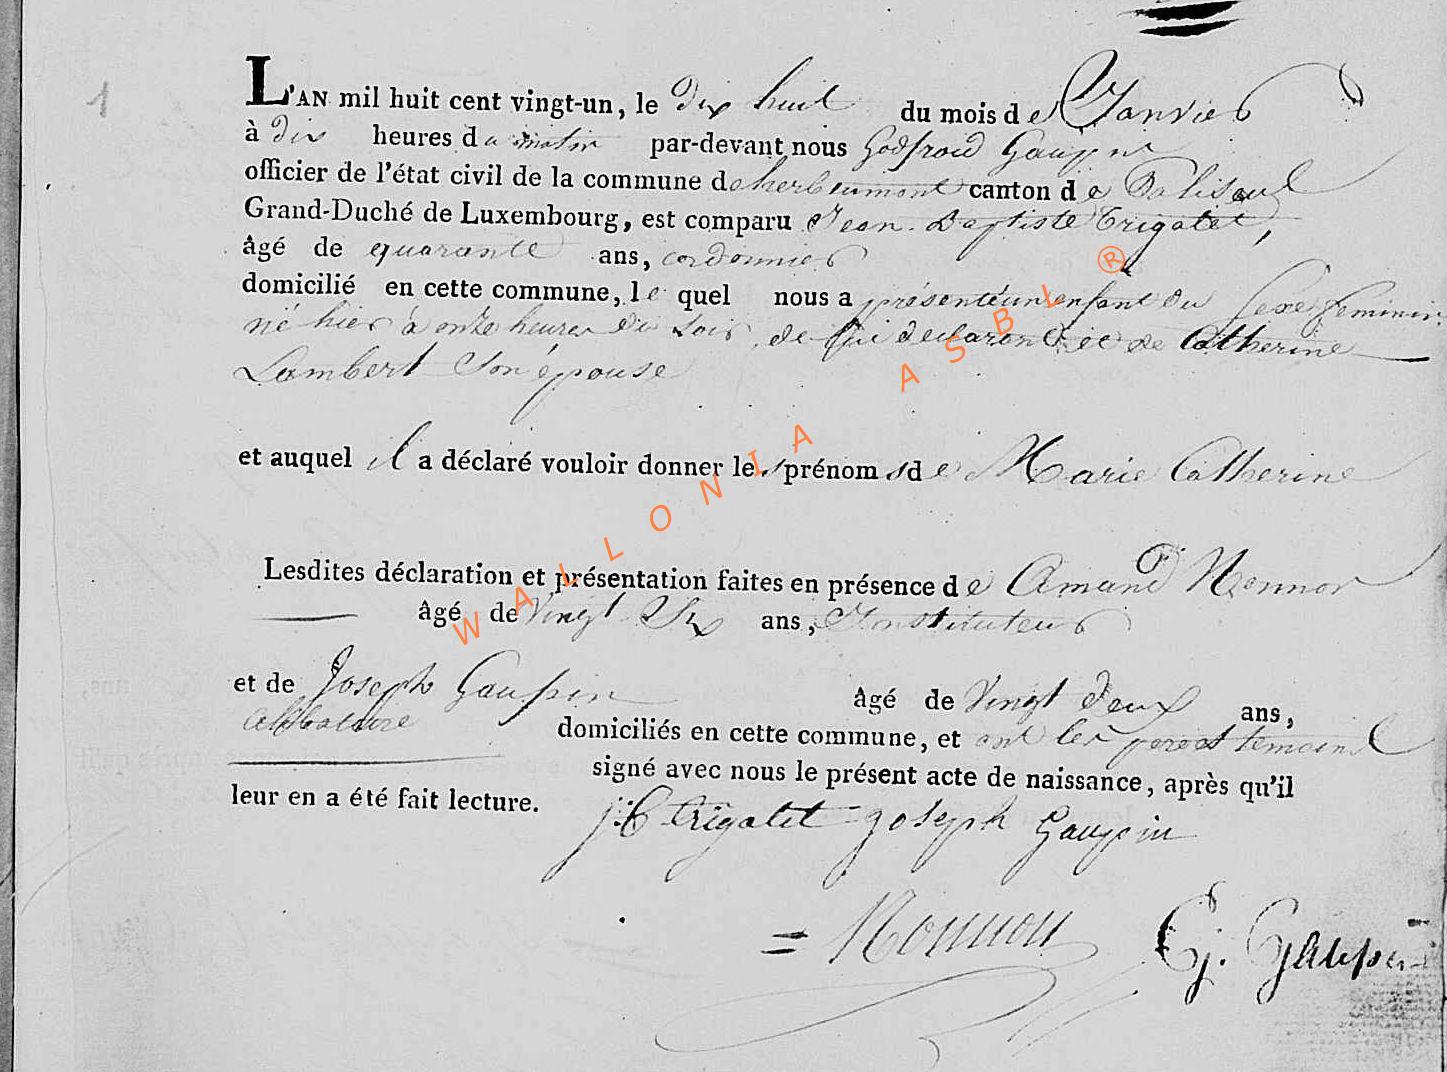 1
L'AN mil huit cent vingt-un, le dix huit du mois de Janvier
à dix heures du matin par-devant nous Godfroid Gaupin
officier de l'état civil de la commune de herbeumont canton de Paliseul
Grand-Duché de Luxembourg, est comparu Jean Baptiste Trigatet,
âgé de quarante ans, cordonnier
domicilié en cette commune, le quel nous a présenté un enfant du sexe feminin
né hier à onze heures du soir, de lui declarant et de Catherine
Lambert son épouse
et auquel il a déclaré vouloir donner les prénoms de Marie Catherine
Lesdites déclaration et présentation faites en présence de Amand Nonnon
âgé de vingt six ans, Instituteur
et de Joseph Gaupin âgé de vingt deux ans,
celibataire domiciliés en cette commune, et ont les pere et temoins
signé avec nous le présent acte de naissance, après qu'il
leur en a été fait lecture.
jB trigatet joseph Gaupin
Nonnon G. Gaupin
WALLONIA ASBL ®